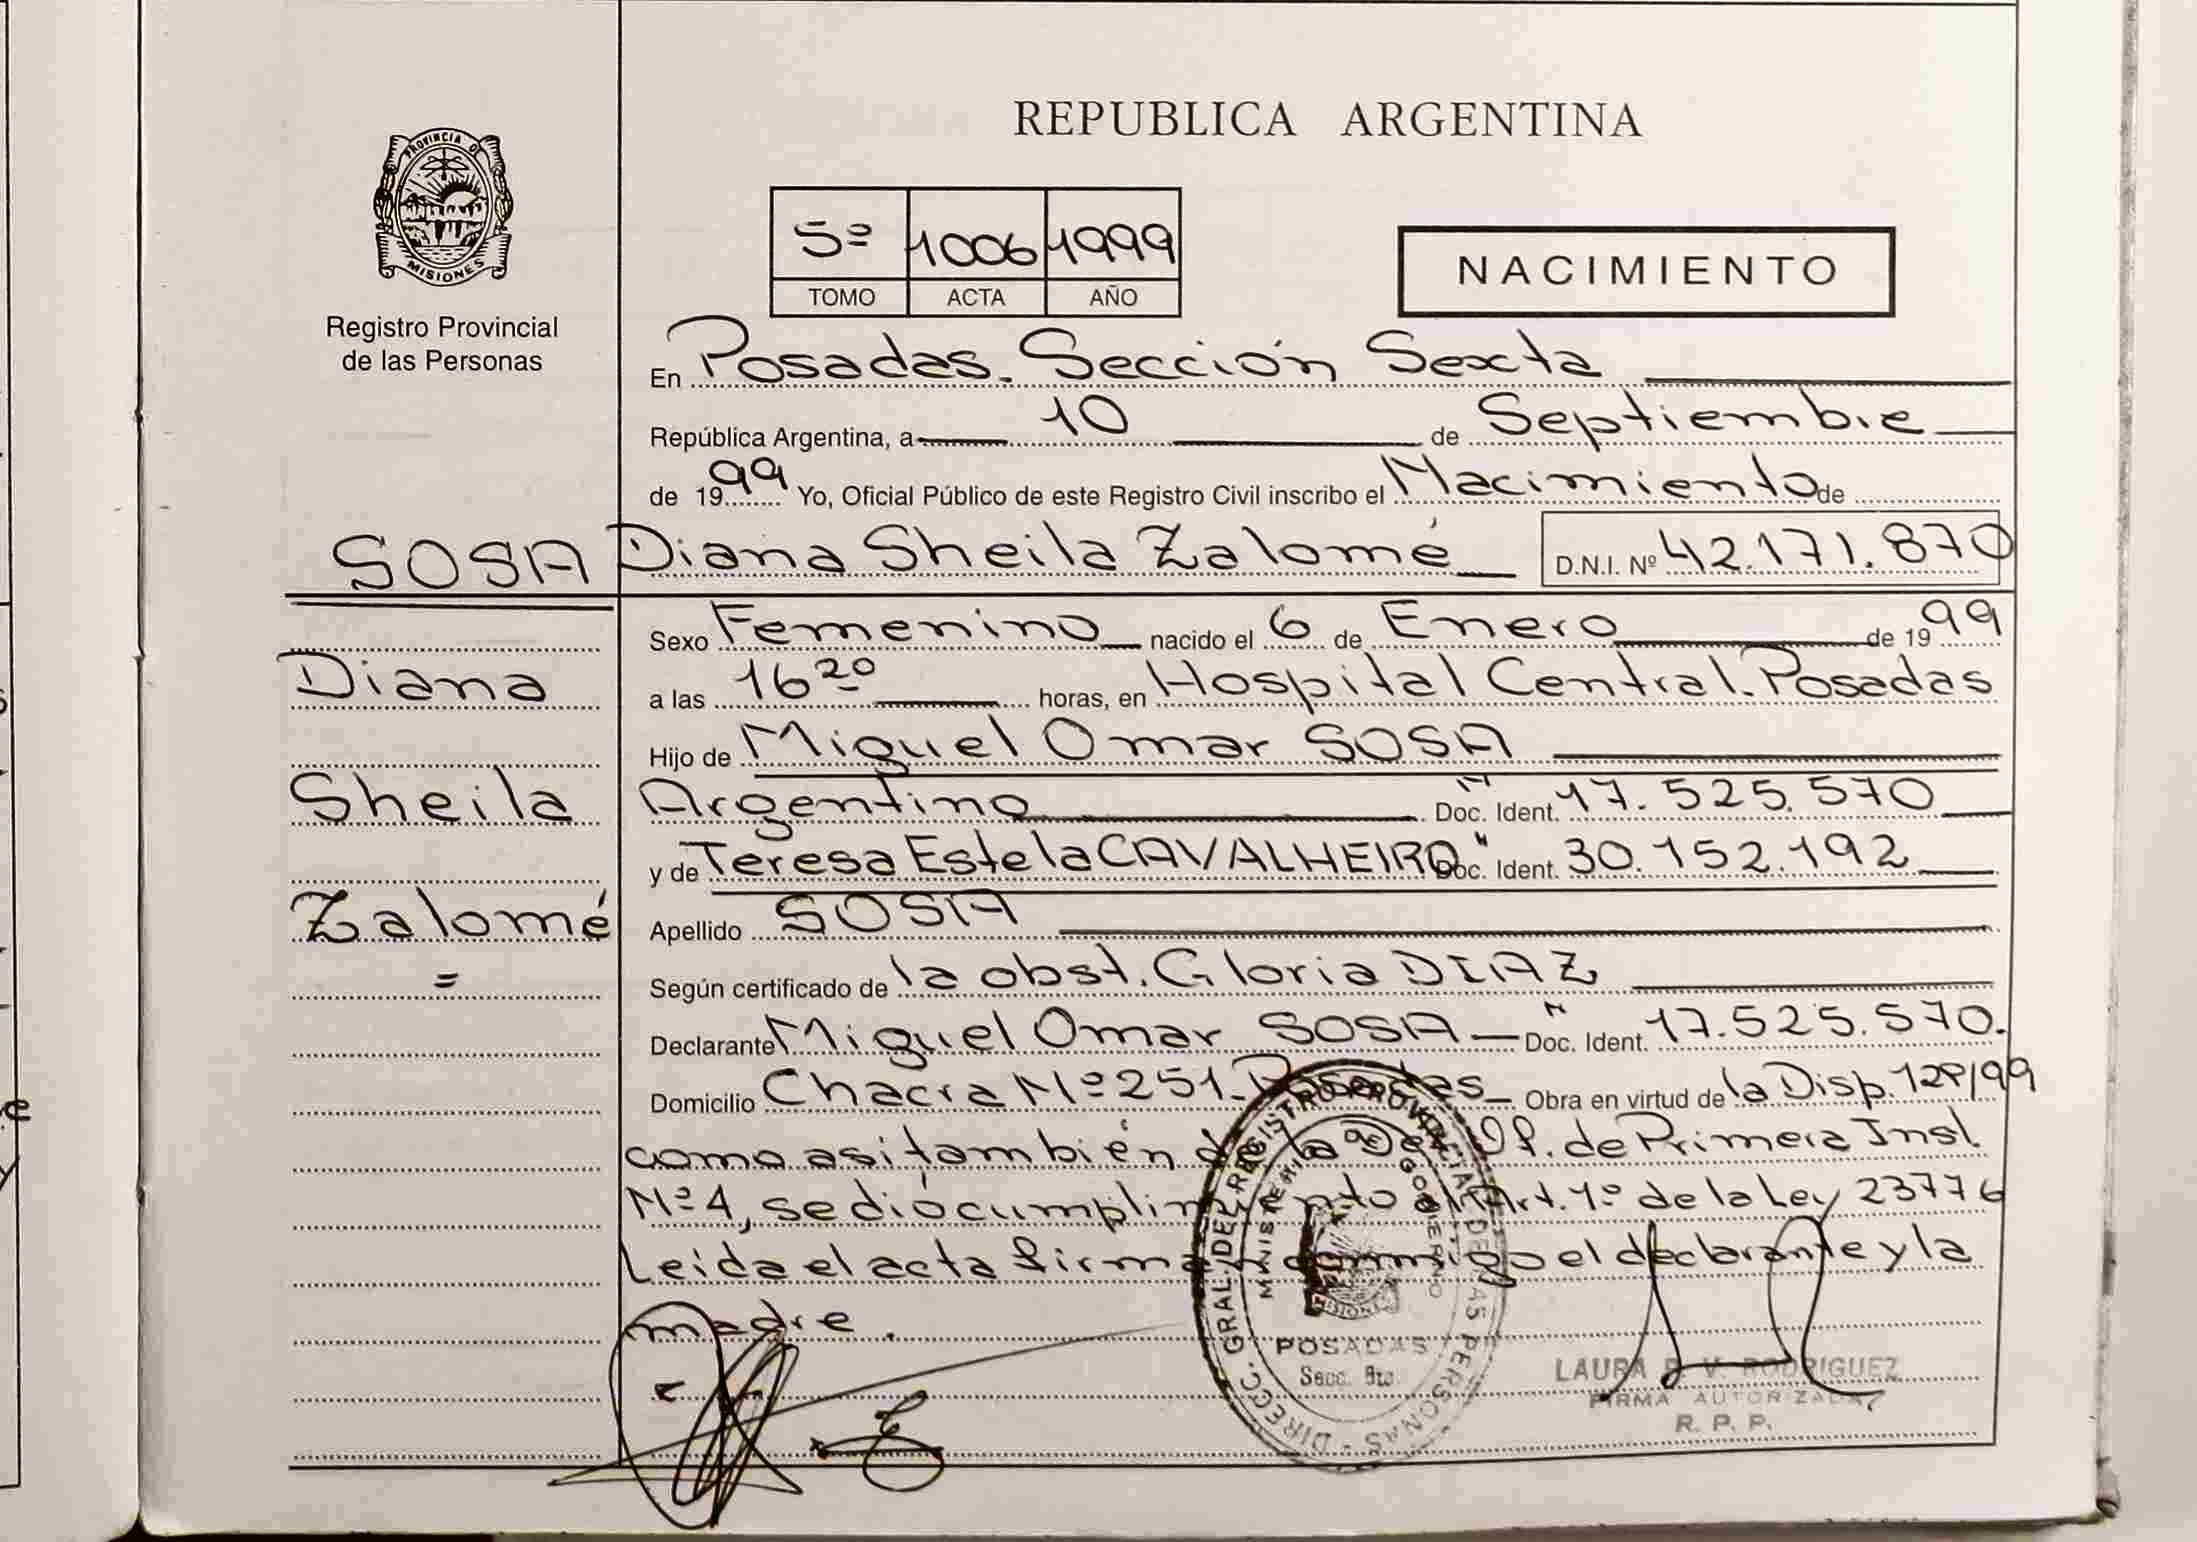 REPUBLICA ARGENTINA
PROVINCIA DE
MISIONES
Registro Provincial
de las Personas
5º 1006 1999
TOMO ACTA AÑO
NACIMIENTO
En Posadas. Sección Sexta
República Argentina, a 10 de Septiembre
de 1999 Yo, Oficial Público de este Registro Civil inscribo el Nacimiento de
SOSA Diana Sheila Zalomé D.N.I. Nº 42.171.870
Sexo Femenino nacido el 6 de Enero de 1999
Diana
a las 16 20 horas, en Hospital Central. Posadas
Hijo de Miguel Omar SOSA
Sheila
Argentino Doc. Ident. 17.525.570
y de Teresa Estela CAVALHEIRO Doc. Ident. 30.152.192
Zalomé
=
Apellido SOSA
Según certificado de la obst. Gloria DIAZ
Declarante Miguel Omar SOSA Doc. Ident. 17.525.570.
Domicilio Chacra Nº 251. Posadas Obra en virtud de la Disp.
como asi también de la Def. Of. de Primera Inst.
Nº 4, se dió cumplimiento al Art. 1º de la Ley 23776
Leida el acta firman conmigo el declarante y la
madre.
DIRECC. GRAL. DEL REGISTRO PROVINCIAL DE LAS PERSONAS
MINISTERIO DE GOBIERNO
MISIONES
POSADAS
Secc.
LAURA V. RODRIGUEZ
FIRMA AUTORIZADA
R. P. P.